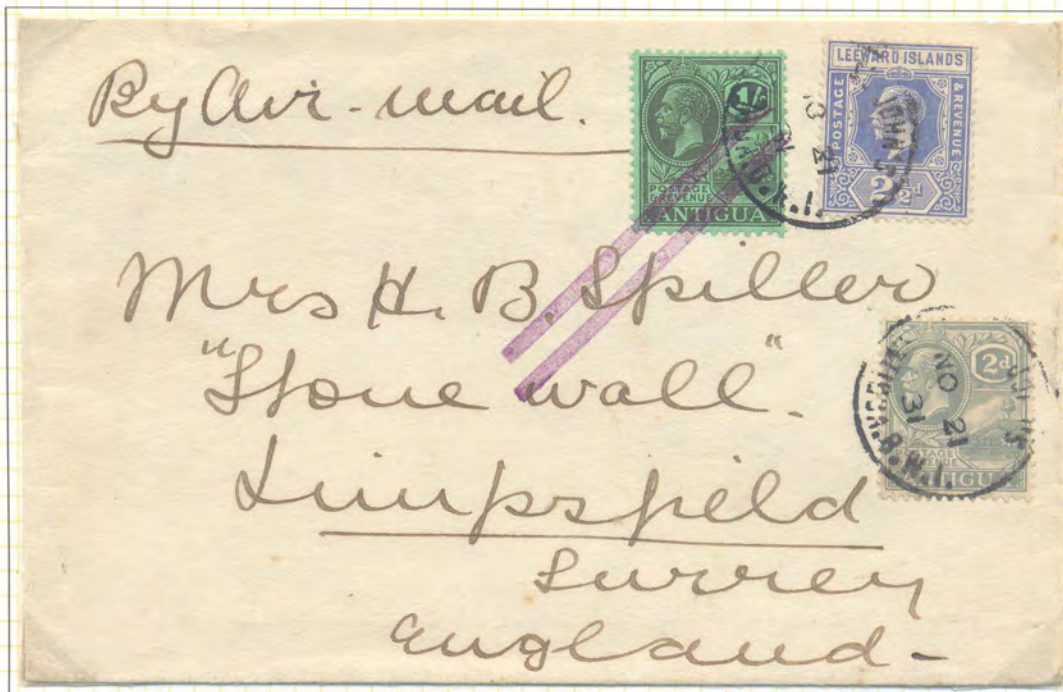 By Air-mail.
1/-
POSTAGE
& REVENUE
ANTIGUA
LEEWARD ISLANDS
POSTAGE
& REVENUE
2½d
ST. JOHN'S
21
B.W.I.
Mrs H. B. Spiller
"Stone wall".
Limpsfield
Surrey
England-
2d
POSTAGE
ANTIGUA
NO 21
31
B.W.I.